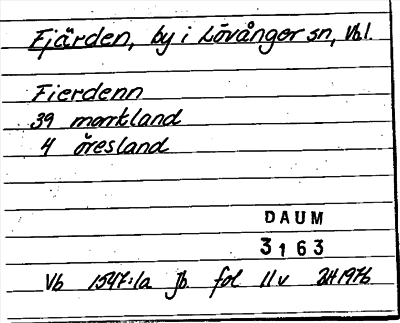 Fjärden, by i Lövånger sn, Vbl.
Fierdenn
39 markland
4 öresland
DAUM
3163
Vb 1547:1a jb fol 11v 1976